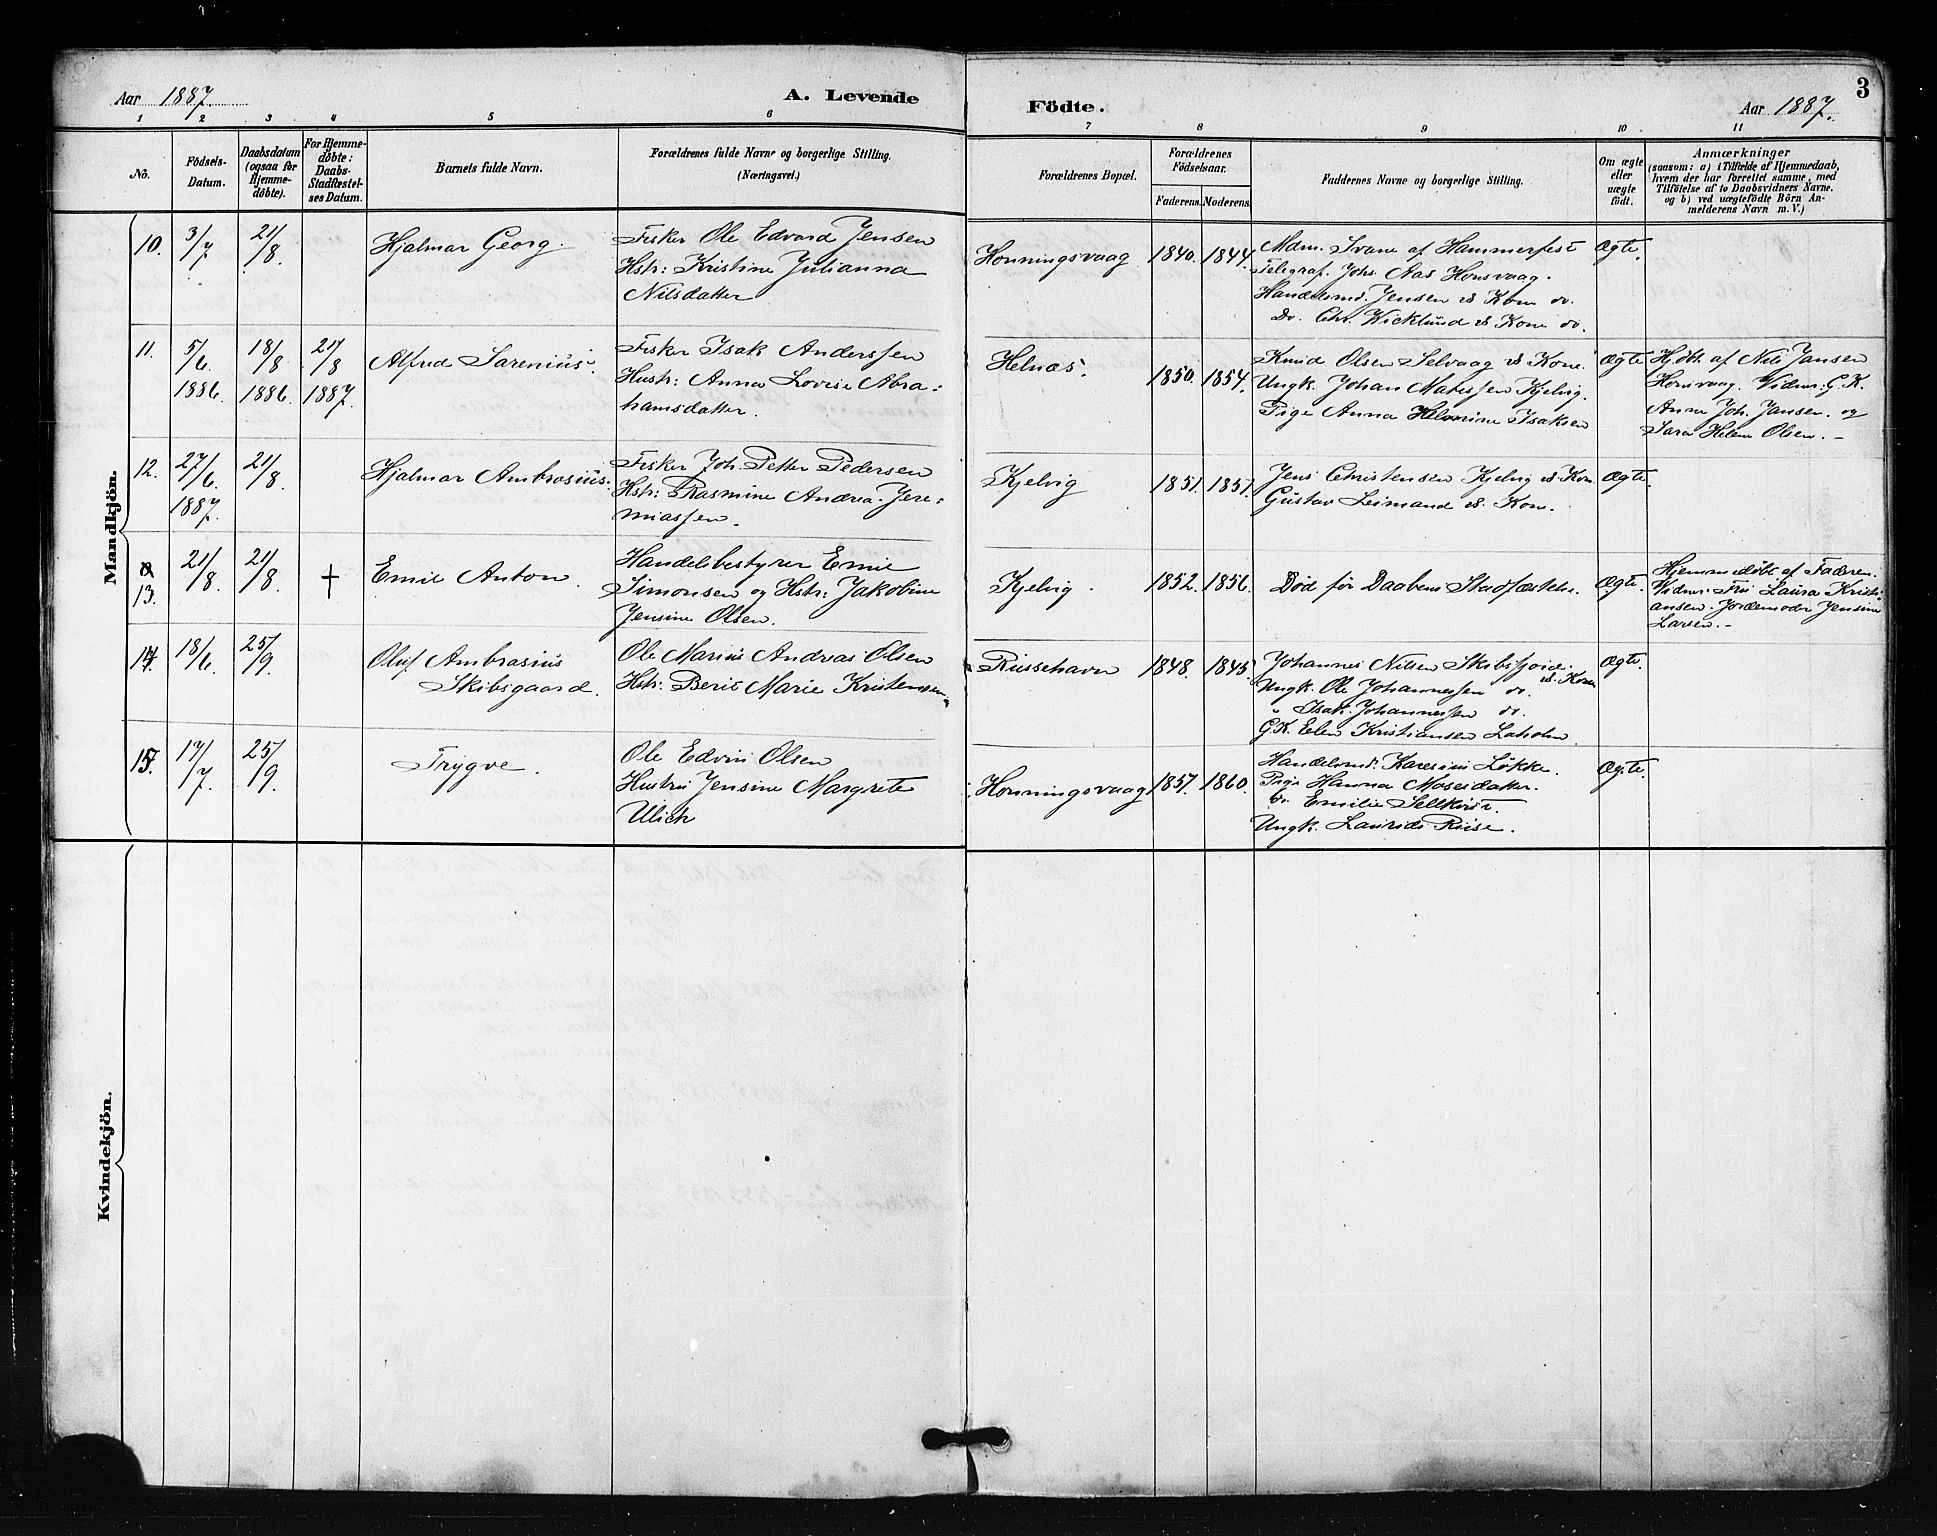 Aar 1887. A. Levende Födte. Aar 1887. 3
1 2 3 4 5 6 7 8 9 10 11
No.
Födsels-
Datum.
Daabsdatum
(ogsaa for
Hjemme-
döbte).
For Hjemme-
döbte:
Daabs-
Stadfæstel-
ses Datum.
Barnets fulde Navn.
Forældrenes fulde Navne og borgerlige Stilling.
(Næringsvei.)
Forældrenes Bopæl.
Forældrenes
Födselsaar.
Faderens. Moderens.
Faddernes Navne og borgerlige Stilling.
Om ægte
eller
uægte
födt.
Anmærkninger
(saasom: a) i Tilfælde af Hjemmedaab,
hvem der har forrettet samme, med
Tilföielse af to Daabsvidners Navne.
og b) ved uægtefödte Börn An-
melderens Navn m. V.)
Mandkjön.
10. 3/7 21/8. Hjalmar Georg.
Fisker Ole Edvard Jensen
Hstr: Kristine Julianna
Nilsdatter
Honningsvaag 1840. 1844.
Mdm. Svane af Hammerfest
Telegraf. Johs. Aas Honsvaag.
Handelsmd. Jensen & Kone do.
Do. Chr. Wicklund & Kone do.
Ægte.
11. 5/6 1886. 18/8 1886. 21/8 1887. Alfred Sarenius.
Fisker Isak Anderssen
Hustr: Anna Lovise Abra-
hamsdatter.
Helnæs. 1850. 1854.
Knud Olsen Selvaag & Kone.
Ungk. Johan Matissen Kjelvig.
Pige Anna Helmine Isaksen
Ægte
Hjdøbt af Nils Jansen
Honsvaag. Vidner: G.K.
Anne Joh. Jansen. og
Sara Helene Olsen. –
12. 27/6. 1887. 21/8. Hjalmar Ambrosius.
Fisker Joh. Petter Pedersen
Hstr: Rasmine Andrea Jere-
miassen.
Kjelvig 1851. 1857.
Jens Christensen Kjelvig & Kone.
Gustav Leimand & Kone.
Ægte.
13. 21/8. 21/8. + Emil Anton.
Handelsbestyrer Emil
Simonsen og Hstr: Jakobine
Jensine Olsen.
Kjelvig. 1852. 1856.
Død før Daabens Stadfæstelse.
Ægte.
Hjemmedøbt af Faderen.
Vidner: Fru Laura Kristi-
ansen. Jordemoder Jensine
Larsen. –
14. 18/6. 25/9. Oluf Ambrasius
Skibsgaard.
Ole Marius Andreas Olsen
Hstr: Berit Marie Kristensen
Russehavn 1848. 1845.
Johannes Nilsen Skibsfjord. & Kone
Ungk. Ole Johannessen do.
" Isak Johannessen do.
G.K. Elen Kristiansen Lafjorden
Ægte.
15. 17/7. 25/9. Trygve.
Ole Edvin Olsen
Hustru Jensine Margrete
Ulich
Honningsvaag 1857. 1860.
Handelsmd. Karesius Løkke.
Pige Hanna Mosesdatter.
do. Emilie Sellkvist.
Ungk. Laurids Ruse.
Ægte.
Kvindekjön.